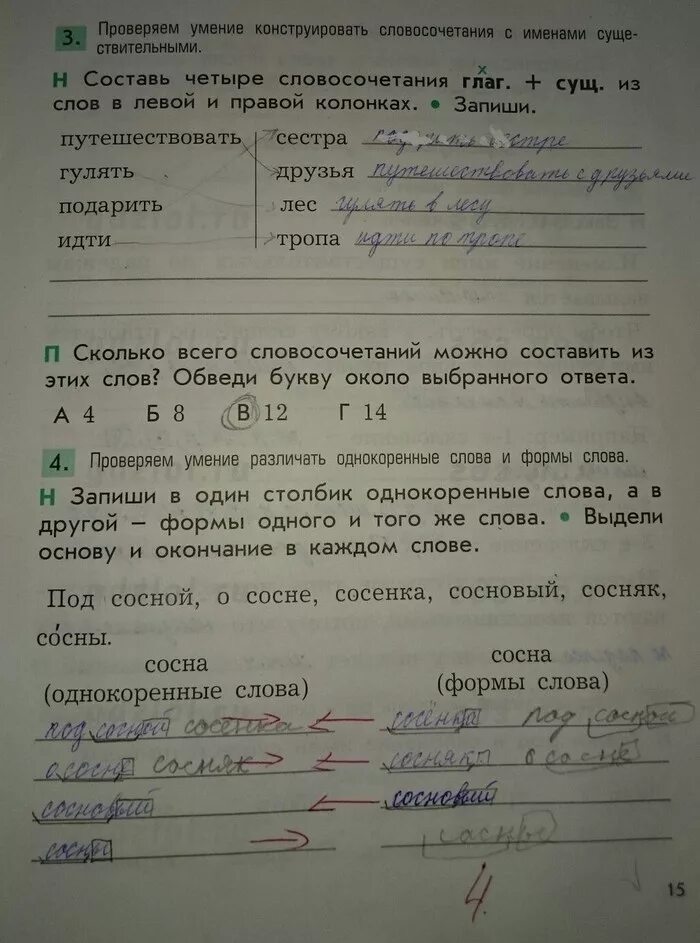 3. Проверяем умение конструировать словосочетания с именами суще-
ствительными.
Н Составь четыре словосочетания глаг. + сущ. из
х
слов в левой и правой колонках. • Запиши.
путешествовать сестра сестре
гулять друзья путешествовать с друзьями
подарить лес гулять в лесу
идти тропа идти по тропе
П Сколько всего словосочетаний можно составить из
этих слов? Обведи букву около выбранного ответа.
А 4 Б 8 В 12 Г 14
4. Проверяем умение различать однокоренные слова и формы слова.
Н Запиши в один столбик однокоренные слова, а в
другой – формы одного и того же слова. • Выдели
основу и окончание в каждом слове.
Под сосной, о сосне, сосенка, сосновый, сосняк,
со́сны.
сосна сосна
(однокоренные слова) (формы слова)
под сосной сосенка сосёнка под сосной
о сосне сосняк сосняк о сосне
сосновый сосновый
сосны сосны
4.
15